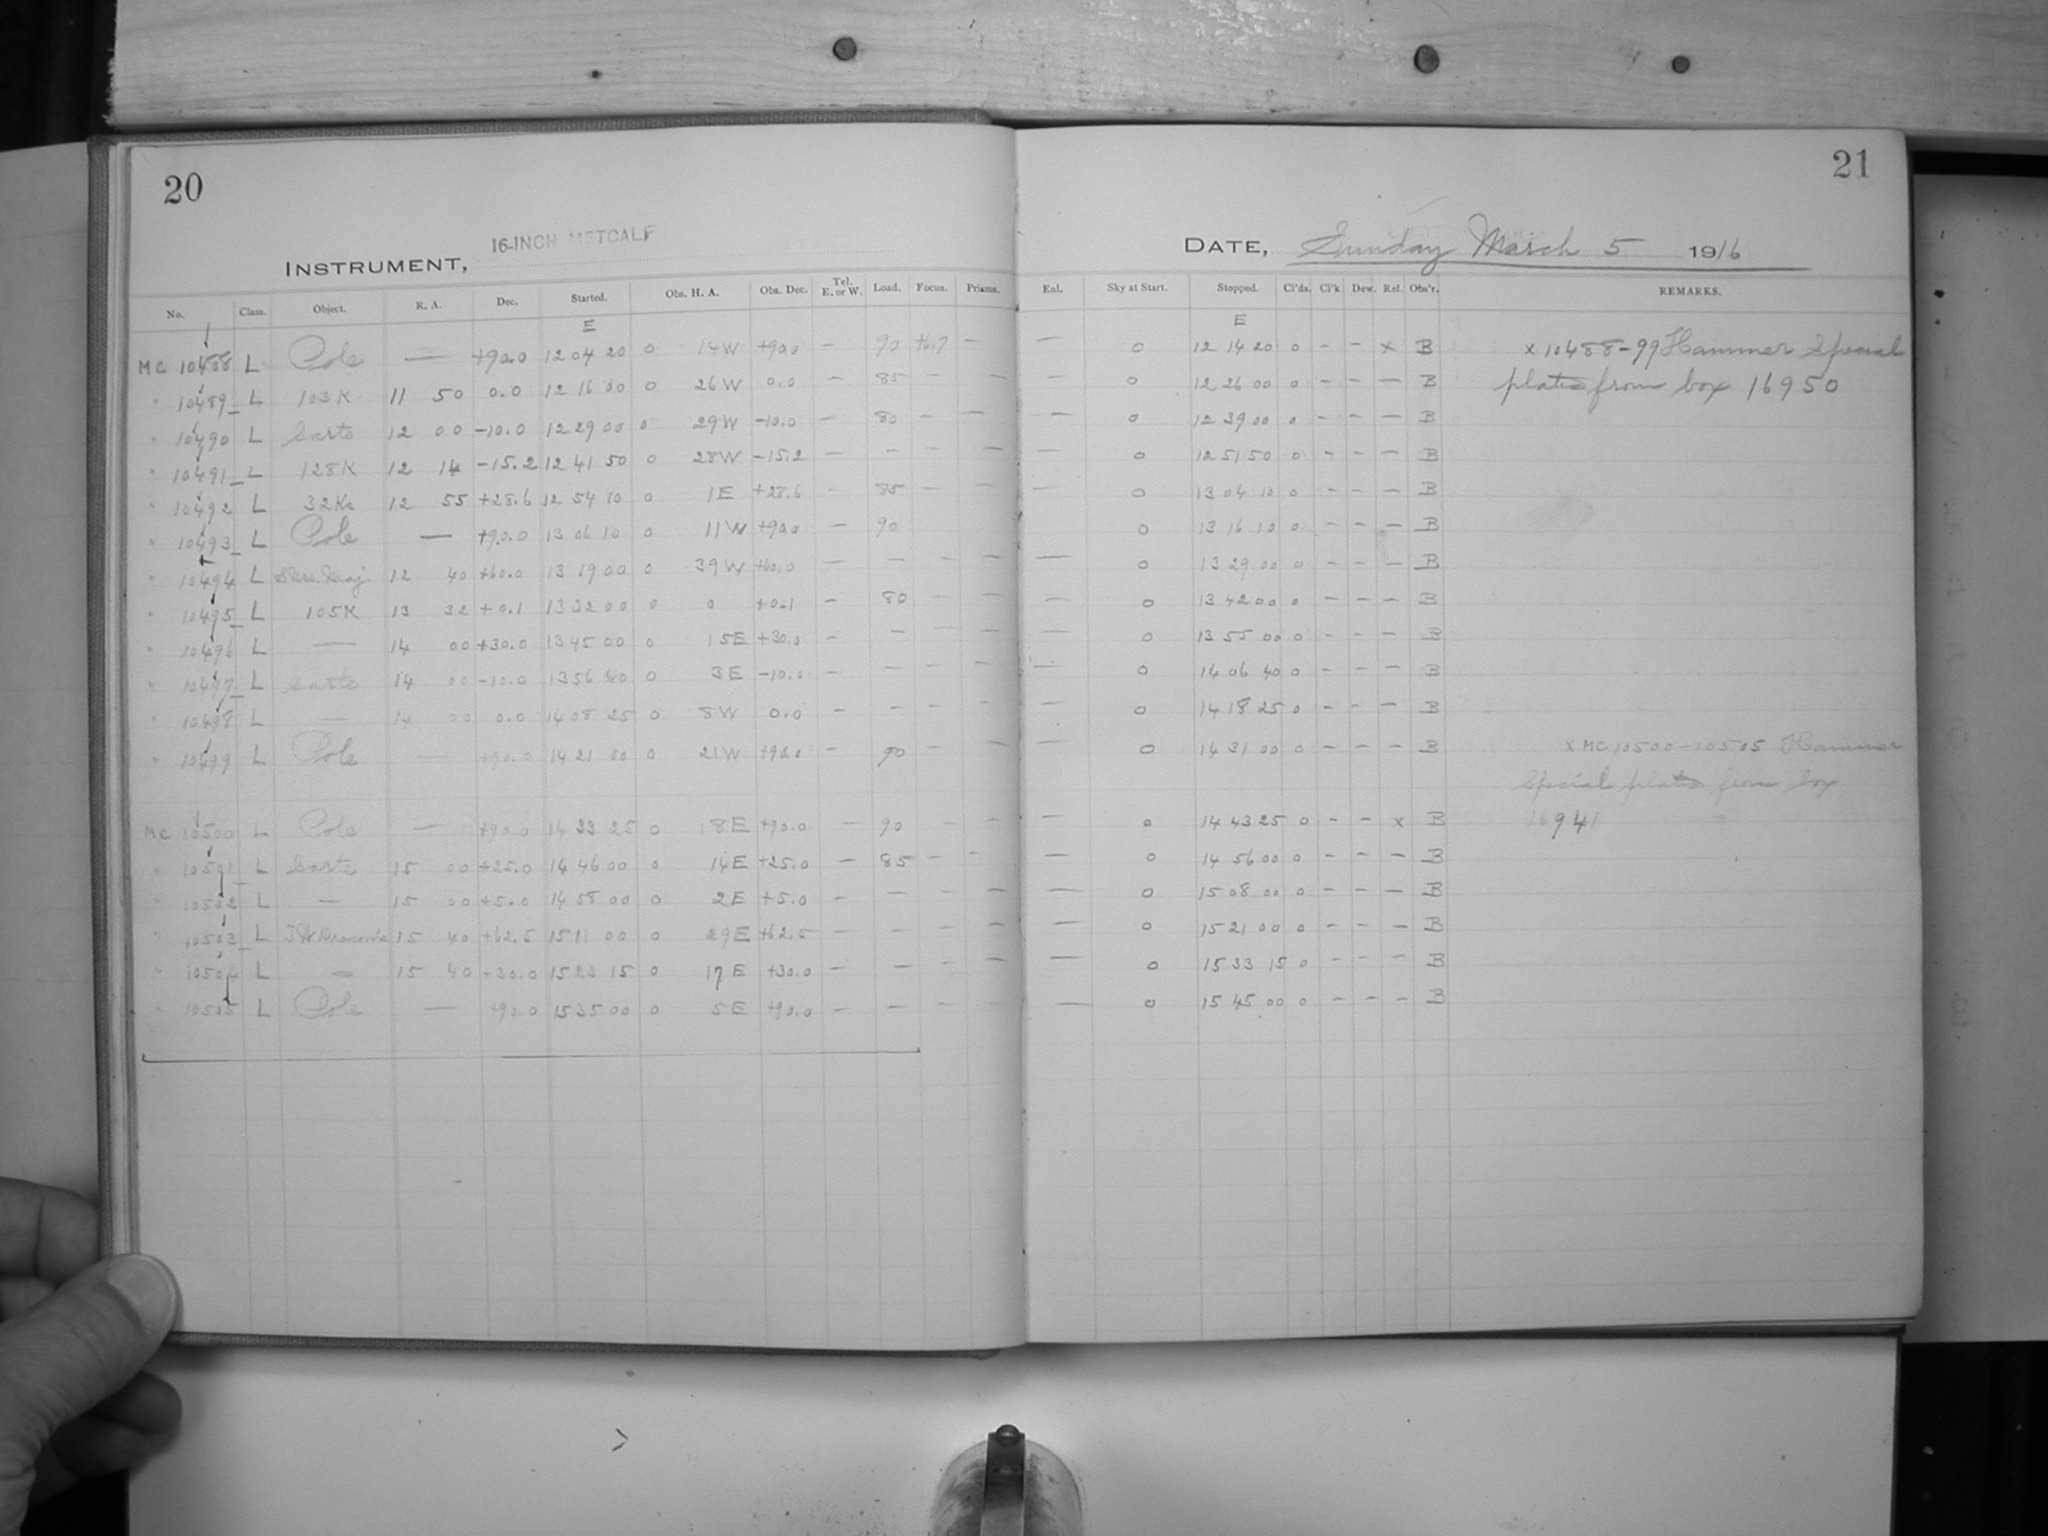 20
21
16-INCH METCALF
INSTRUMENT,
DATE, Sunday March 5 1916
No. Class. Object. R. A. Dec. Started. Obs. H. A. Obs. Dec. Tel. E. or W. Load. Focus. Prisms. Enl. Sky at Start. Stopped. Cl'ds. Cl'k Dew. Ref. Obs'r. REMARKS.
E E
MC 10488 L Pole — +90.0 12 04 20 0 14W +90.0 – 90 – — 0 12 14 20 0 – – x B x 10488-99 Hammer Special
" 10489 L 103K 11 50 0.0 12 16 00 0 26W 0.0 – 85 – – — 0 12 26 00 0 – – – B plates from box 16950
" 10490 L Carte 12 00 -10.0 12 29 00 0 29W -10.0 – 80 – – — 0 12 39 00 0 – – – B
" 10491 L 128K 12 14 -15.2 12 41 50 0 28W -15.2 – – – – — 0 12 51 50 0 – – – B
" 10492 L 12 55 +28.6 12 54 10 0 1E +28.6 – 85 – – — 0 13 04 10 0 – – – B
" 10493 L Pole — +90.0 13 06 10 0 11W +90.0 – 90 0 13 16 10 0 – – – B
" 10494 L 12 40 +60.0 13 19 00 0 39W +60.0 – – – – — 0 13 29 00 0 – – – B
" 10495 L 105K 13 32 +0.1 13 32 00 0 0 +0.1 – 80 – – — 0 13 42 00 0 – – – B
" 10496 L — 14 00 +30.0 13 45 00 0 15E +30.0 – – – – — 0 13 55 00 0 – – – B
" 10497 L Carte 14 00 -10.0 13 56 40 0 3E -10.0 – – – – — 0 14 06 40 0 – – – B
" 10498 L — 14 00 0.0 14 08 25 0 8W 0.0 – – – – — 0 14 18 25 0 – – – B
" 10499 L Pole — +90.0 14 21 00 0 21W +90.0 – 90 – – — 0 14 31 00 0 – – – B x MC 10500-10505 Hammer
Special plates from box
MC 10500 L Pole — +90.0 14 33 25 0 18E +90.0 – 90 – – — 0 14 43 25 0 – – x B 16941
" 10501 L Carte 15 00 +25.0 14 46 00 0 14E +25.0 – 85 – – — 0 14 56 00 0 – – – B
" 10502 L — 15 00 +5.0 14 58 00 0 2E +5.0 – – – – — 0 15 08 00 0 – – – B
" 10503 L 15 40 +62.5 15 11 00 0 29E +62.5 – – – – — 0 15 21 00 0 – – – B
" 10504 L — 15 40 +30.0 15 23 15 0 17E +30.0 – – – – — 0 15 33 15 0 – – – B
" 10505 L Pole — +90.0 15 35 00 0 5E +90.0 – – – – — 0 15 45 00 0 – – – B